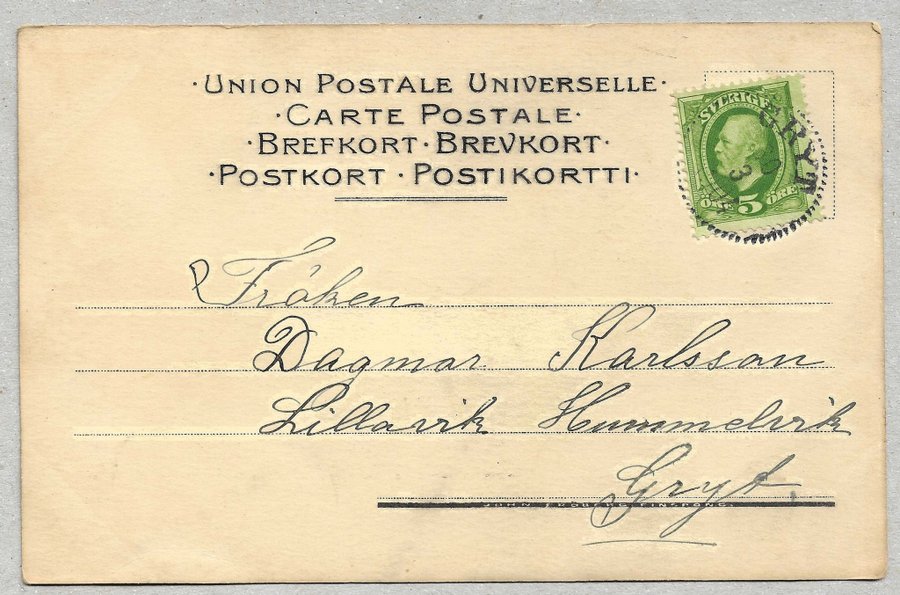 ·UNION POSTALE UNIVERSELLE·
·CARTE POSTALE·
·BREFKORT·BREVKORT·
·POSTKORT·POSTIKORTTI·
SVERIGE
GRYT
3
ÖRE 5 ÖRE
Fröken
Dagmar Karlsson
Lillavik Hummelvik
Gryt.
JOHN FROBERG FINSPONG.